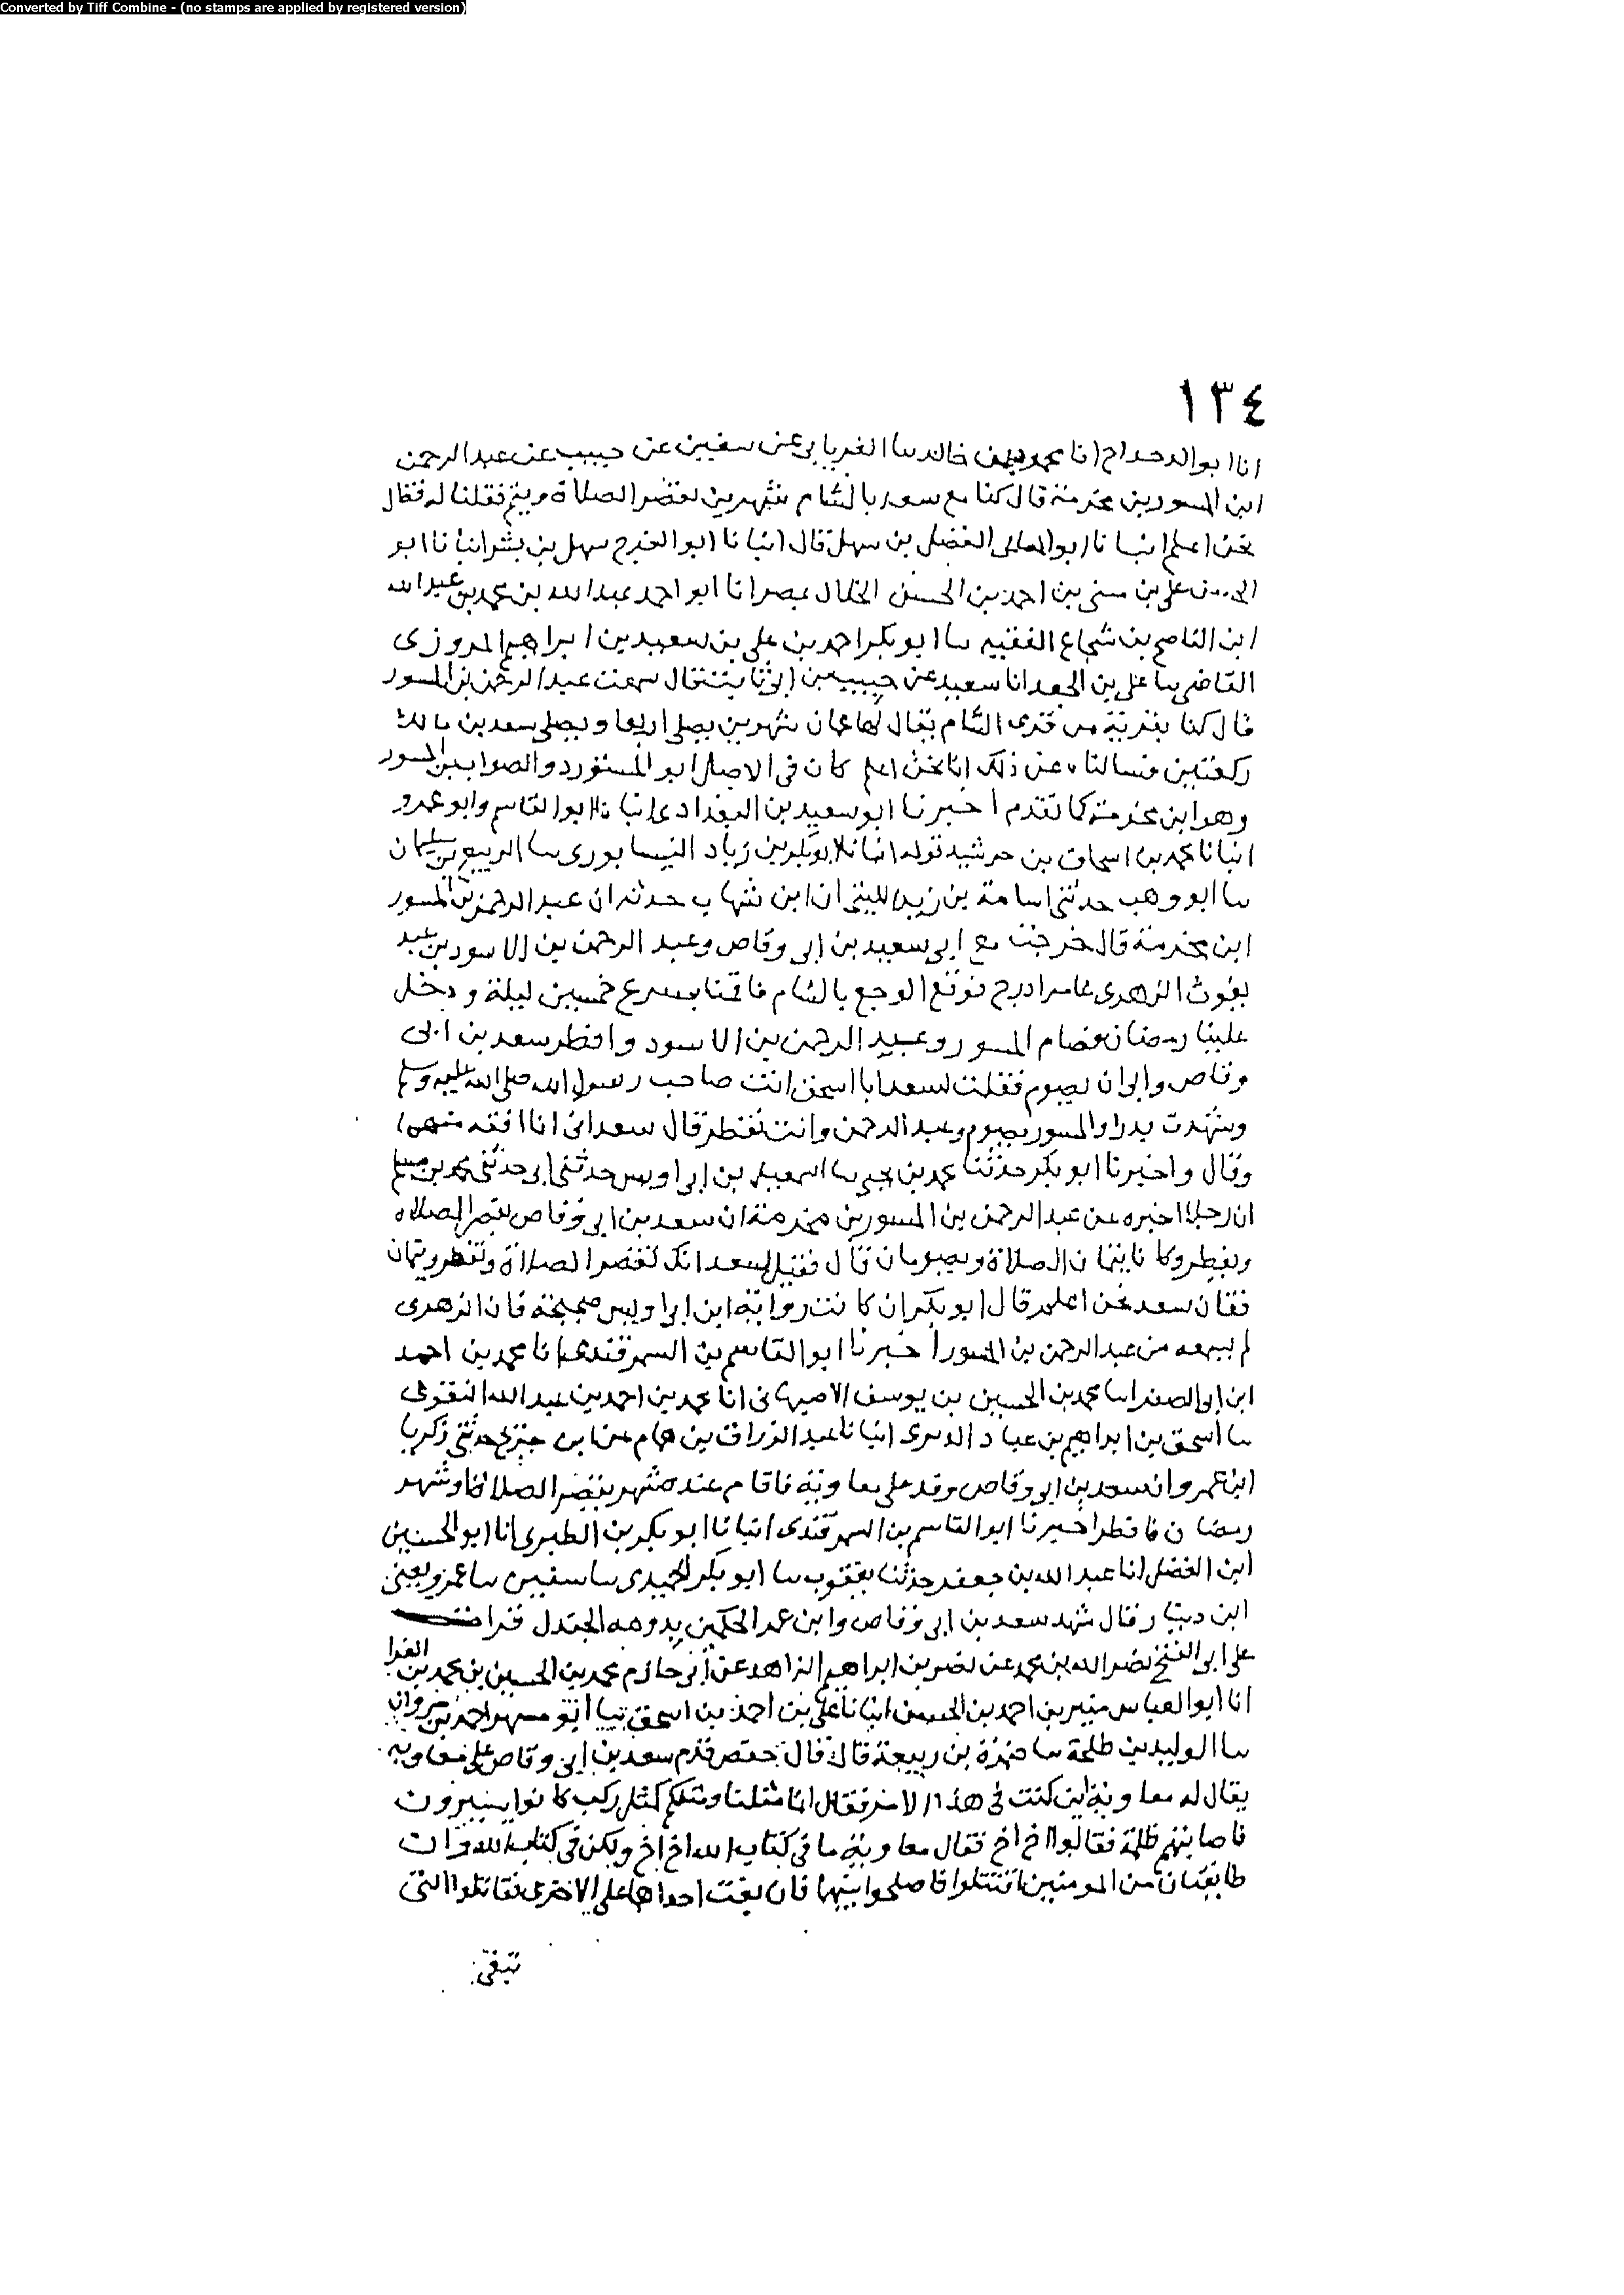 Converted by Tiff Combine - (no stamps are applied by registered version)
١٣٤
انا ابو الدحداح انا محمد بن خالد سا الفريابى عن سفين عن حبيب عن عبد الرحمن
ابن المسور بن مخرمة قال كنا مع سعد بالشام شهرين نقصر الصلاة ويتم فقلنا له فقال
نحن اعلم انبا نا ابو المعالى الفضل بن سهل قال انبا نا ابو الفرج سهل بن بشر انبا نا ابو
على بن منى بن احمد بن الحسين الخلال بمصر انا ابو احمد عبد الله بن محمد بن عبد الله
ابن الناصح بن شجاع الفقيه سا ابو بكر احمد بن على بن سعيد بن ابراهيم المروزى
القاضى سا على بن الجعد انا سعيد عن حبيب بن ابى ثابت قال سمعت عبد الرحمن بن المسور
قال كنا بقرية من قرى الشام يقال لها عمان شهرين يصلى اربعا ويصلى سعد بن مالك
ركعتين فسالناه عن ذلك انا نحن اعلم كان فى الاصل ابو المستورد والصواب بن المسور
وهو ابن مخرمة كما تقدم اخبرنا ابو سعيد بن البغدادى انبا نا ابو القاسم وابو عمرو
انبا نا محمد بن اسحاق بن خرشيد قوله انبا نا ابو بكر بن زياد النيسابورى سا الربيع بن سليمان
سا ابو وهب حدثنى اسامة بن زيد الليثى ان ابن شهاب حدثه ان عبد الرحمن بن المسور
ابن مخرمة قال خرجت مع ابى سعيد بن ابى وقاص وعبد الرحمن بن الاسود بن عبد
يغوث الزهرى عام ادرح فوقع الوجع بالشام فاقمنا بسرع خمسين ليلة ودخل
علينا رمضان فصام المسور وعبد الرحمن بن الاسود وافطر سعد بن ابى
وقاص وابى ان يصوم فقلت لسعد ابا اسحق انت صاحب رسول الله صلى الله عليه وسلم
وشهدت بدرا والمسور يصوم وعبد الرحمن وانت تفطر قال سعد انى انا افقه منهما
وقال واخبرنا ابو بكر حدثنا محمد بن يحيى سا اسمعيل بن ابى اويس حدثنى ابى حدثنى محمد بن مسلم
ان رجلا اخبره عن عبد الرحمن بن المسور بن مخرمة ان سعد بن ابى وقاص يقصر الصلاة
ويفطر وكانا يتمان الصلاة ويصومان قال فقيل لسعد انك تقصر الصلاة وتفطر ويتمان
فقال سعد نحن اعلم قال ابو بكر ان كانت رواية ابن ابى اويس صحيحة فان الزهرى
لم يسمعه من عبد الرحمن بن المسور اخبرنا ابو القاسم بن السمرقندى انا محمد بن احمد
ابن ابى الصقر انا محمد بن الحسين بن يوسف الاصبهانى انا محمد بن احمد بن عبد الله النقوى
سا اسحق بن ابراهيم بن عباد الدبرى انبا نا عبد الرزاق بن همام عن ابن جريج حدثنى زكريا
ابن عمرو ان سعد بن ابى وقاص وفد على معاوية فاقام عنده شهر يقصر الصلاة وشهر
رمضان فافطر اخبرنا ابو القاسم بن السمرقندى انبا نا ابو بكر بن الطبرى انا ابو الحسين
ابن الفضل انا عبد الله بن جعفر حدثنا يعقوب سا ابو بكر الحميدى سا سفين سا عمرو يعنى
ابن دينار قال شهد سعد بن ابى وقاص وابن عمر الحكمين بدومة الجندل قرات
على ابى الفتح نصر الله بن محمد عن نصر بن ابراهيم الزاهد عن ابى حازم محمد بن الحسين بن محمد بن الفرا
انا ابو العباس منير بن احمد بن الحسن انبا نا على بن احمد بن اسحق سا ابو مسهر احمد بن مروان
سا الوليد بن طلحة سا ضمرة بن ربيعة قال قال جعفر قدم سعد بن ابى وقاص على معاوية
يقال له معاوية اين كنت فى هذا الامر فقال انما مثلنا ومثلكم كمثل ركب كانوا يسيرون
فاصابتهم ظلمة فقالوا اخ اخ فقال معاوية ما فى كتاب الله اخ اخ ولكن فى كتاب الله وان
طايفتان من المومنين اقتتلوا فاصلحوا بينهما فان بغت احداهما على الاخرى فقاتلوا التى
تبغى